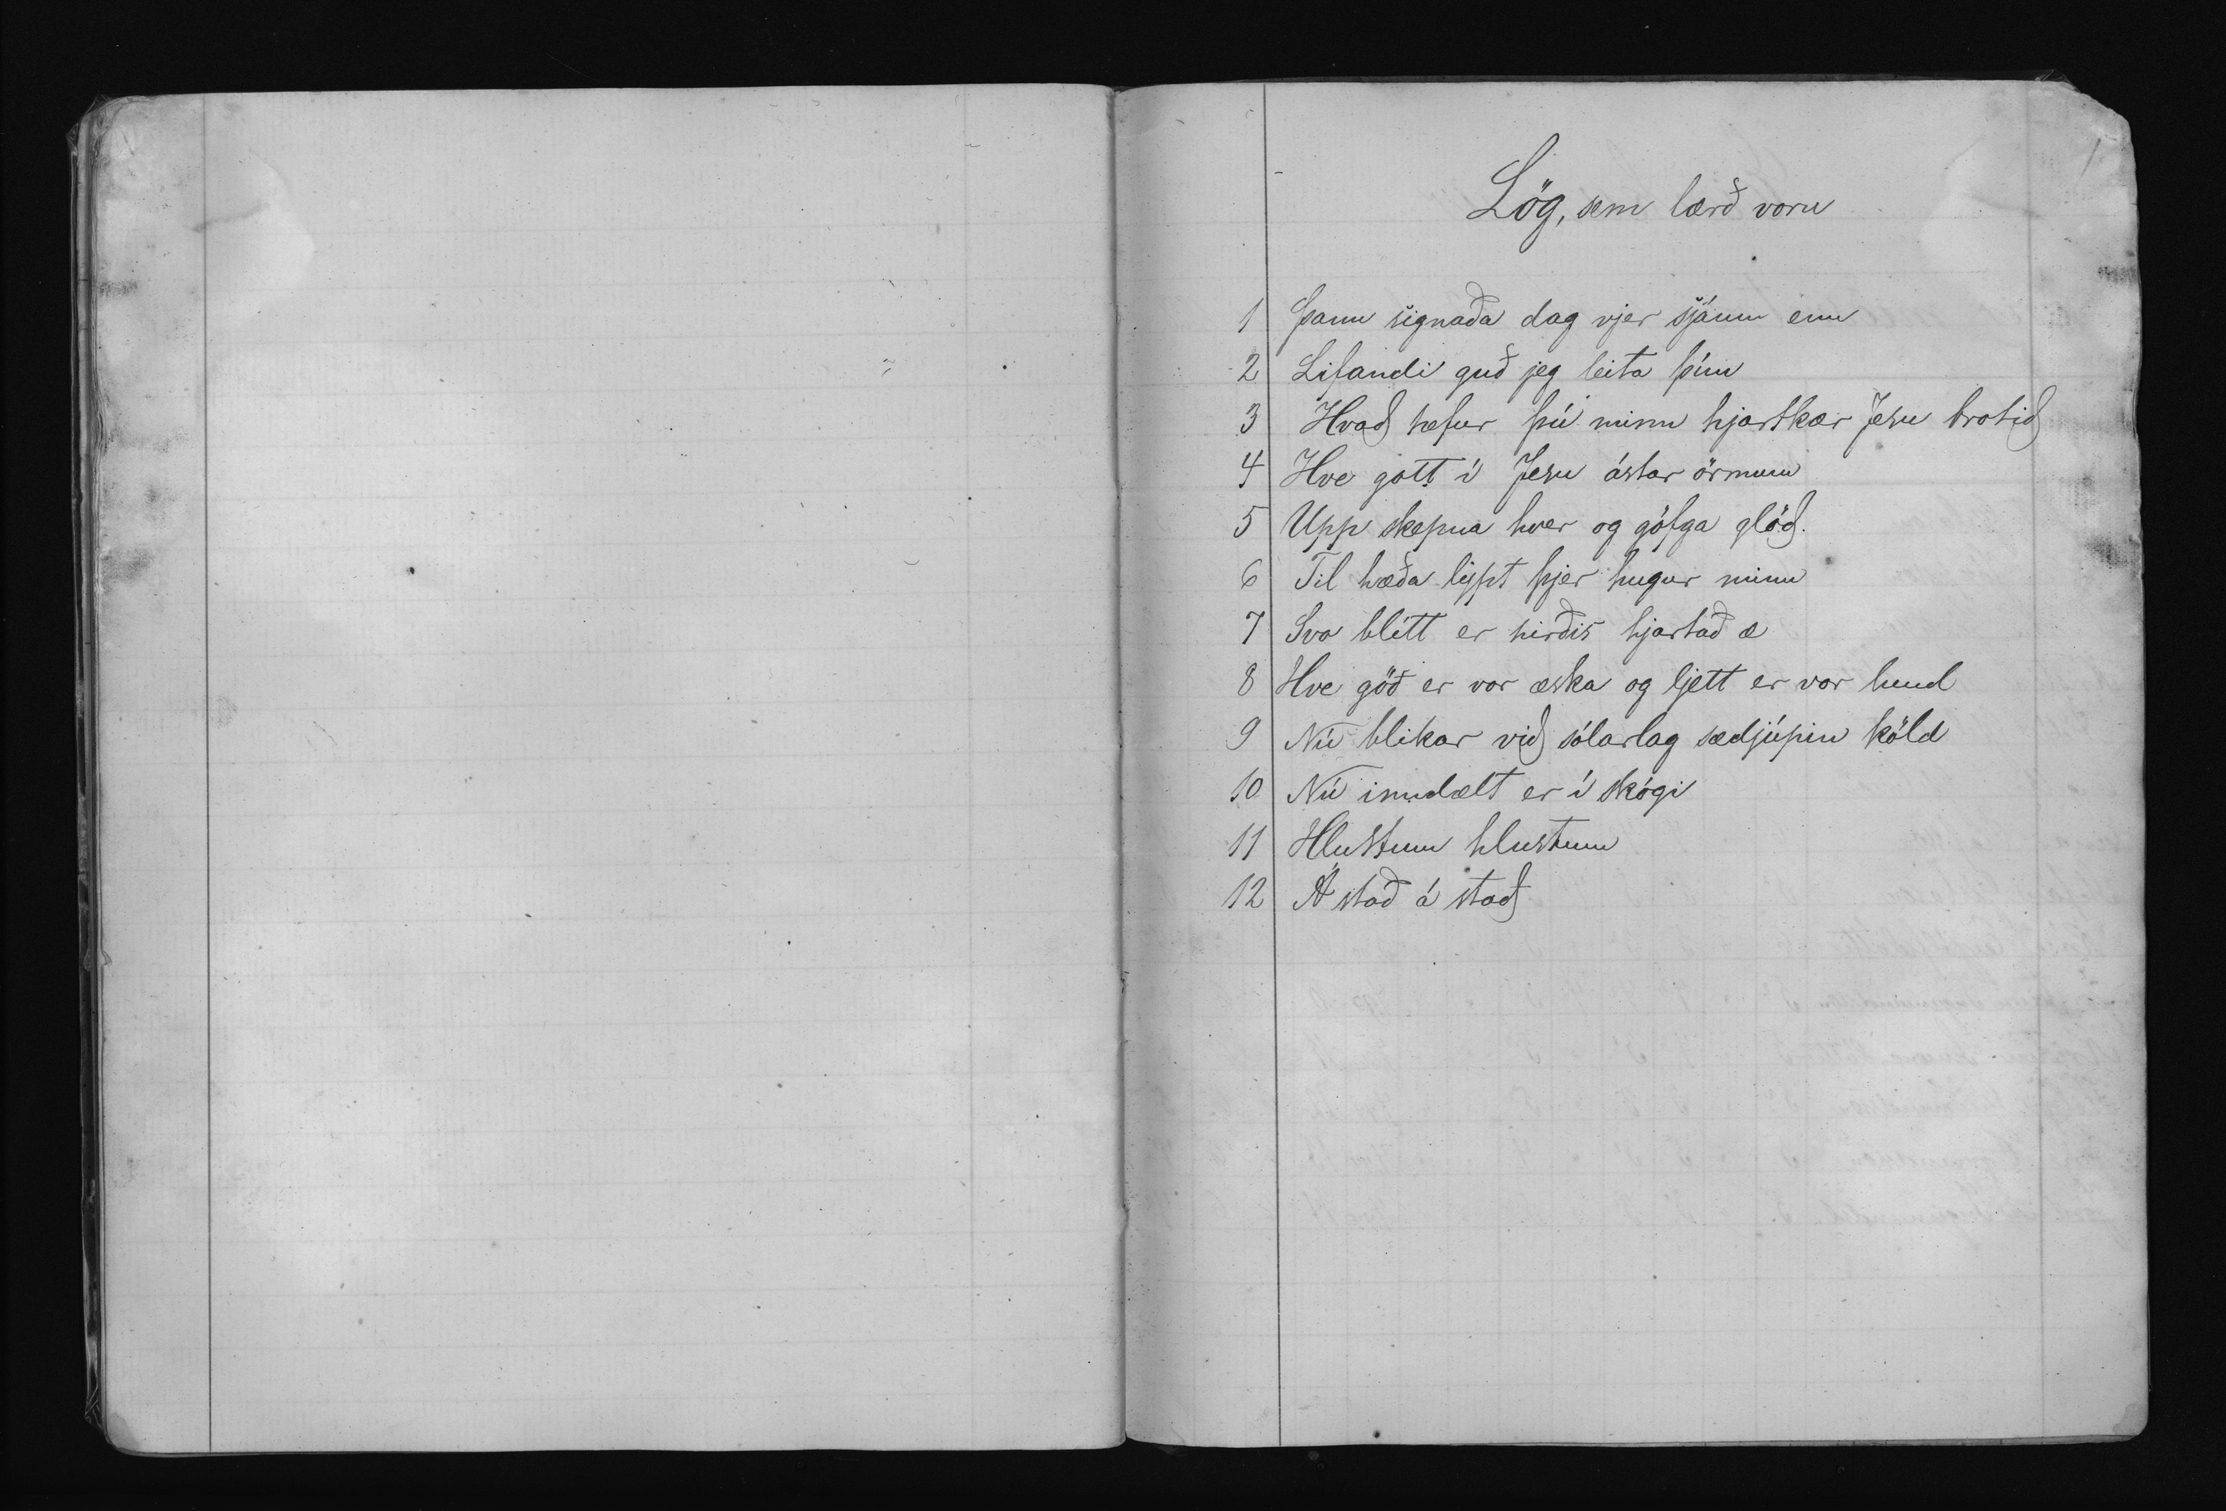 1
Lög, sem lærð voru
1 Þann signaða dag vjer sjáum enn
2 Lifandi guð jeg leita þín
3 Hvað hefur þú minn hjartkær Jesu brotið
4 Hve gott í Jesu ástar örmum
5 Upp skepna hver og göfga glöð.
6 Til hæða lypt þjer hugur minn
7 Svo blítt er hirðis hjartað æ
8 Hve góð er vor æska og ljett er vor lund
9 Nú blikar við sólarlag sædjúpin köld
10 Nú inndælt er í skógi
11 Hlustum hlustum
12 Á stað á stað